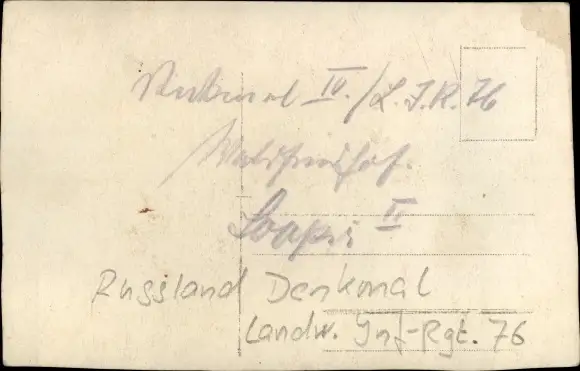 Denkmal IV./L.I.R. 76
Soapis II
Russland Denkmal
Landw. Inf-Rgt. 76